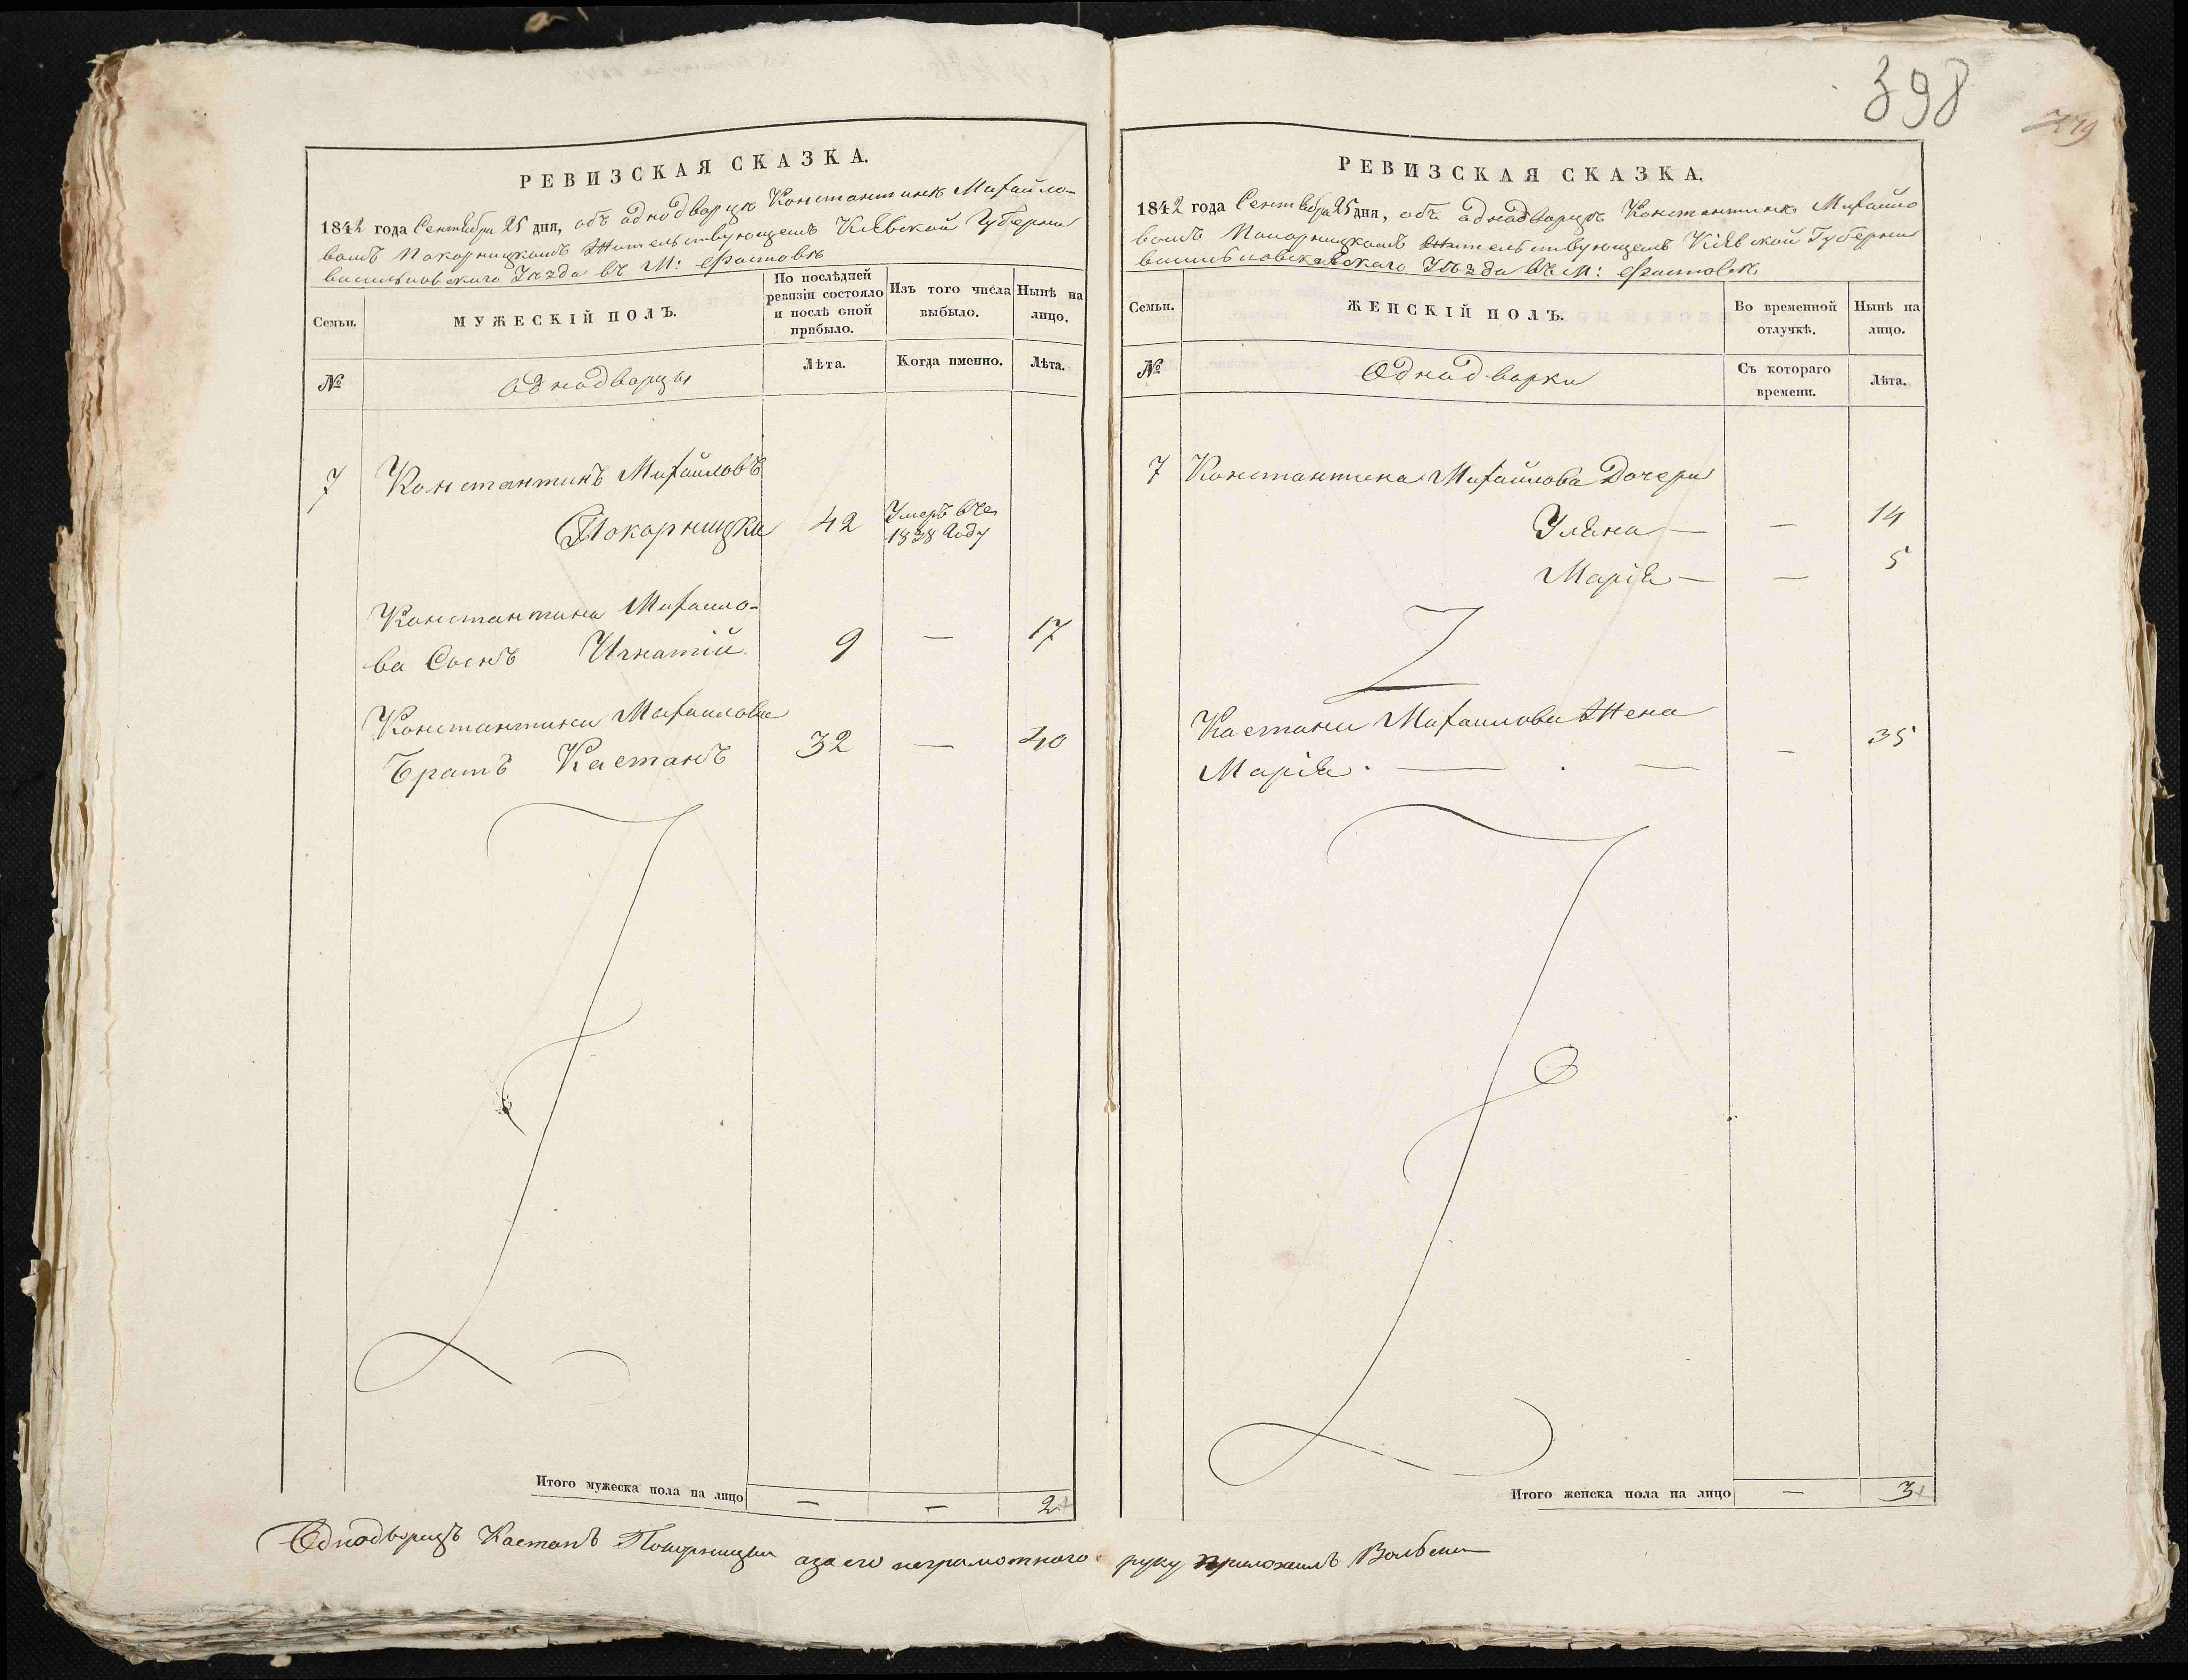 398
РЕВИЗСКАЯ СКАЗКА.
1842 года Сентября 25 дня, объ однодворцѣ Константинѣ Михайло-
вомъ Покорницкомъ Жительствующемъ Кіевской Губерніи
васильковскаго Уѣзда въ М: Фастовѣ
Семьи.
МУЖЕСКІЙ ПОЛЪ.
По послѣдней
ревизіи состояло
и послѣ оной
прибыло.
Изъ того числа
выбыло.
Нынѣ на
лицо.
№
Однодворцы
Лѣта.
Когда именно.
Лѣта.
7 Константинъ Михайловъ
Покорницки 42 Умеръ въ
1838 Году
Константина Михайло-
ва Сынъ Игнатій 9 — 17
Константина Михайлова
Братъ Каетанъ 32 — 40
Итого мужеска пола на лицо — — 2
РЕВИЗСКАЯ СКАЗКА.
1842 года Сентября 25 дня, объ однодворцѣ Константинѣ Михайло
вомъ Покорницкомъ Жительствующемъ Кіевской Губерніи
Уѣзда въ М: Фастовѣ
Семьи.
ЖЕНСКІЙ ПОЛЪ.
Во временной
отлучкѣ.
Нынѣ на
лицо.
№
Однодворки
Съ котораго
времени.
Лѣта.
7 Константина Михайлова Дочери
Уляна — — 14
Марія — — 5
Каетана Михайлова Жена
Марія. — . — — 35
Итого женска пола на лицо — 3
Однодворецъ Каетанъ Покорницки а за его неграмотного руку приложилъ